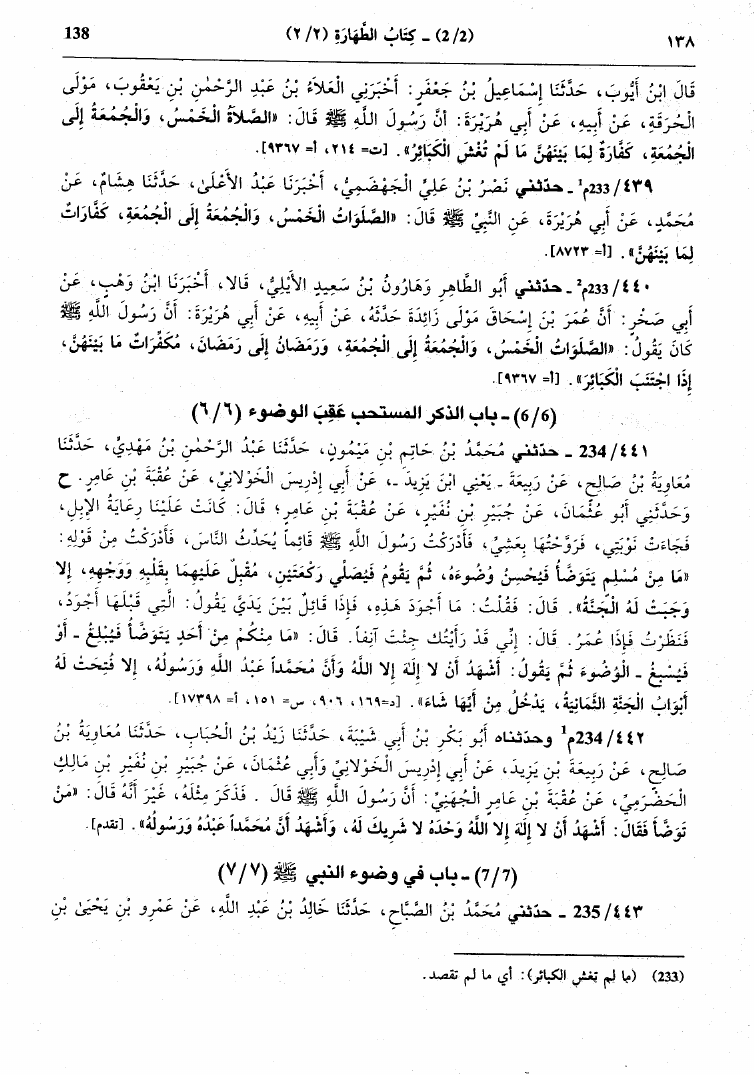 138 (2/2) ـ كِتَابُ الطَّهَارَةِ (٢/٢) ١٣٨
قَالَ ابْنُ أَيُّوبَ، حَدَّثَنَا إِسْمَاعِيلُ بْنُ جَعْفَرٍ: أَخْبَرَنِي الْعَلاَءُ بْنُ عَبْدِ الرَّحْمٰنِ بْنِ يَعْقُوبَ، مَوْلَى
الْحُرَقَةِ، عَنْ أَبِيهِ، عَنْ أَبِي هُرَيْرَةَ: أَنَّ رَسُولَ اللَّهِ ﷺ قَالَ: «الصَّلاَةُ الْخَمْسُ، وَالْجُمْعَةُ إِلَى
الْجُمْعَةِ، كَفَّارَةٌ لِمَا بَيْنَهُنَّ مَا لَمْ تُغْشَ الْكَبَائِرُ». [ت= ٢١٤، أ= ٩٣٦٧].
٤٣٩/ 233م¹ ـ حدّثني نَصْرُ بْنُ عَلِيٍّ الْجَهْضَمِيُّ، أَخْبَرَنَا عَبْدُ الأَعْلَى، حَدَّثَنَا هِشَامٌ، عَنْ
مُحَمَّدٍ، عَنْ أَبِي هُرَيْرَةَ، عَنِ النَّبِيِّ ﷺ قَالَ: «الصَّلَوَاتُ الْخَمْسُ، وَالْجُمْعَةُ إِلَى الْجُمْعَةِ، كَفَّارَاتٌ
لِمَا بَيْنَهُنَّ». [أ= ٨٧٢٣].
٤٤٠/ 233م² ـ حدّثني أَبُو الطَّاهِرِ وَهَارُونُ بْنُ سَعِيدٍ الأَيْلِيُّ، قَالا، أَخْبَرَنَا ابْنُ وَهْبٍ، عَنْ
أَبِي صَخْرٍ: أَنَّ عُمَرَ بْنَ إِسْحَاقَ مَوْلَى زَائِدَةَ حَدَّثَهُ، عَنْ أَبِيهِ، عَنْ أَبِي هُرَيْرَةَ: أَنَّ رَسُولَ اللَّهِ ﷺ
كَانَ يَقُولُ: «الصَّلَوَاتُ الْخَمْسُ، وَالْجُمْعَةُ إِلَى الْجُمْعَةِ، وَرَمَضَانُ إِلَى رَمَضَانَ، مُكَفِّرَاتٌ مَا بَيْنَهُنَّ،
إِذَا اجْتَنَبَ الْكَبَائِرَ». [أ= ٩٣٦٧].
(6/6) ـ باب الذكر المستحب عَقِبَ الوضوء (٦/٦)
٤٤١/ 234 ـ حدّثني مُحَمَّدُ بْنُ حَاتِمِ بْنِ مَيْمُونٍ، حَدَّثَنَا عَبْدُ الرَّحْمٰنِ بْنُ مَهْدِيٍّ، حَدَّثَنَا
مُعَاوِيَةُ بْنُ صَالِحٍ، عَنْ رَبِيعَةَ ـ يَعْنِي ابْنَ يَزِيدَ ـ، عَنْ أَبِي إِدْرِيسَ الْخَوْلاَنِيِّ، عَنْ عُقْبَةَ بْنِ عَامِرٍ. ح
وَحَدَّثَنِي أَبُو عُثْمَانَ، عَنْ جُبَيْرِ بْنِ نُفَيْرٍ، عَنْ عُقْبَةَ بْنِ عَامِرٍ؛ قَالَ: كَانَتْ عَلَيْنَا رِعَايَةُ الإِبِلِ،
فَجَاءَتْ نَوْبَتِي، فَرَوَّحْتُهَا بِعَشِيٍّ، فَأَدْرَكْتُ رَسُولَ اللَّهِ ﷺ قَائِماً يُحَدِّثُ النَّاسَ، فَأَدْرَكْتُ مِنْ قَوْلِهِ:
«مَا مِنْ مُسْلِمٍ يَتَوَضَّأُ فَيُحْسِنُ وُضُوءَهُ، ثُمَّ يَقُومُ فَيُصَلِّي رَكْعَتَيْنِ، مُقْبِلٌ عَلَيْهِمَا بِقَلْبِهِ وَوَجْهِهِ، إِلا
وَجَبَتْ لَهُ الْجَنَّةُ». قَالَ: فَقُلْتُ: مَا أَجْوَدَ هَذِهِ، فَإِذَا قَائِلٌ بَيْنَ يَدَيَّ يَقُولُ: الَّتِي قَبْلَهَا أَجْوَدُ،
فَنَظَرْتُ فَإِذَا عُمَرُ. قَالَ: إِنِّي قَدْ رَأَيْتُكَ جِئْتَ آنِفاً. قَالَ: «مَا مِنْكُمْ مِنْ أَحَدٍ يَتَوَضَّأُ فَيُبْلِغُ ـ أَوْ
فَيُسْبِغُ ـ الْوُضُوءَ ثُمَّ يَقُولُ: أَشْهَدُ أَنْ لا إِلَهَ إِلا اللَّهُ وَأَنَّ مُحَمَّداً عَبْدُ اللَّهِ وَرَسُولُهُ، إِلا فُتِحَتْ لَهُ
أَبْوَابُ الْجَنَّةِ الثَّمَانِيَةُ، يَدْخُلُ مِنْ أَيِّهَا شَاءَ». [د=١٦٩، ٩٠٦، س= ١٥١، أ= ١٧٣٩٨].
٤٤٢/ 234م¹ وحدّثناه أَبُو بَكْرِ بْنُ أَبِي شَيْبَةَ، حَدَّثَنَا زَيْدُ بْنُ الْحُبَابِ، حَدَّثَنَا مُعَاوِيَةُ بْنُ
صَالِحٍ، عَنْ رَبِيعَةَ بْنِ يَزِيدَ، عَنْ أَبِي إِدْرِيسَ الْخَوْلاَنِيِّ وَأَبِي عُثْمَانَ، عَنْ جُبَيْرِ بْنِ نُفَيْرِ بْنِ مَالِكٍ
الْحَضْرَمِيِّ، عَنْ عُقْبَةَ بْنِ عَامِرٍ الْجُهَنِيِّ: أَنَّ رَسُولَ اللَّهِ ﷺ قَالَ . فَذَكَرَ مِثْلَهُ، غَيْرَ أَنَّهُ قَالَ: «مَنْ
تَوَضَّأَ فَقَالَ: أَشْهَدُ أَنْ لا إِلَهَ إِلا اللَّهُ وَحْدَهُ لا شَرِيكَ لَهُ، وَأَشْهَدُ أَنَّ مُحَمَّداً عَبْدُهُ وَرَسُولُهُ». [تقدم].
(7/7) ـ باب في وضوء النبي ﷺ (٧/٧)
٤٤٣/ 235 ـ حدّثني مُحَمَّدُ بْنُ الصَّبَّاحِ، حَدَّثَنَا خَالِدُ بْنُ عَبْدِ اللَّهِ، عَنْ عَمْرِو بْنِ يَحْيَىٰ بْنِ
(233) (ما لم تغش الكبائر): أي ما لم تقصد.